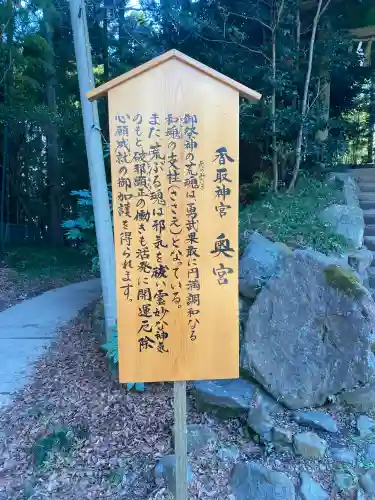 香取神宮 奥宮
御祭神の荒魂は勇武果敢に円満調和なる
和魂の支え(ささえ)となっている。
また荒ぶる魂は邪気を祓い霊妙な神気
のもと破邪顕正の働きも活発に開運厄除
心願成就の御加護を得られます。